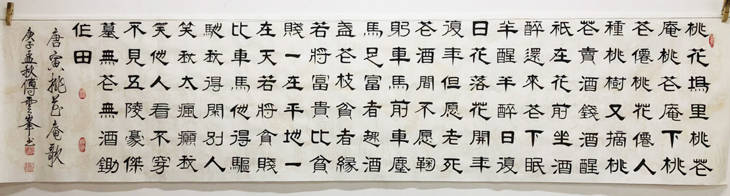 桃花塢里桃花
庵桃花庵下桃
花僊桃花僊人
種桃樹又摘桃
花賣酒錢酒醒
祇在花前坐酒
醉還來花下眠
半醒半醉日復
日花落花開年
復年但愿老死
花酒間不愿鞠
躬車馬前車塵
馬足富者趣酒
盞花枝貧者緣
若將富貴比貧
賤一在平地一
在天若將貧賤
比車馬他得驅
馳我得閑別人
笑我太瘋癲我
笑他人看不穿
不見五陵豪傑
墓無花無酒鋤
作田
唐寅桃花庵歌
庚子孟秋傅雲峯書